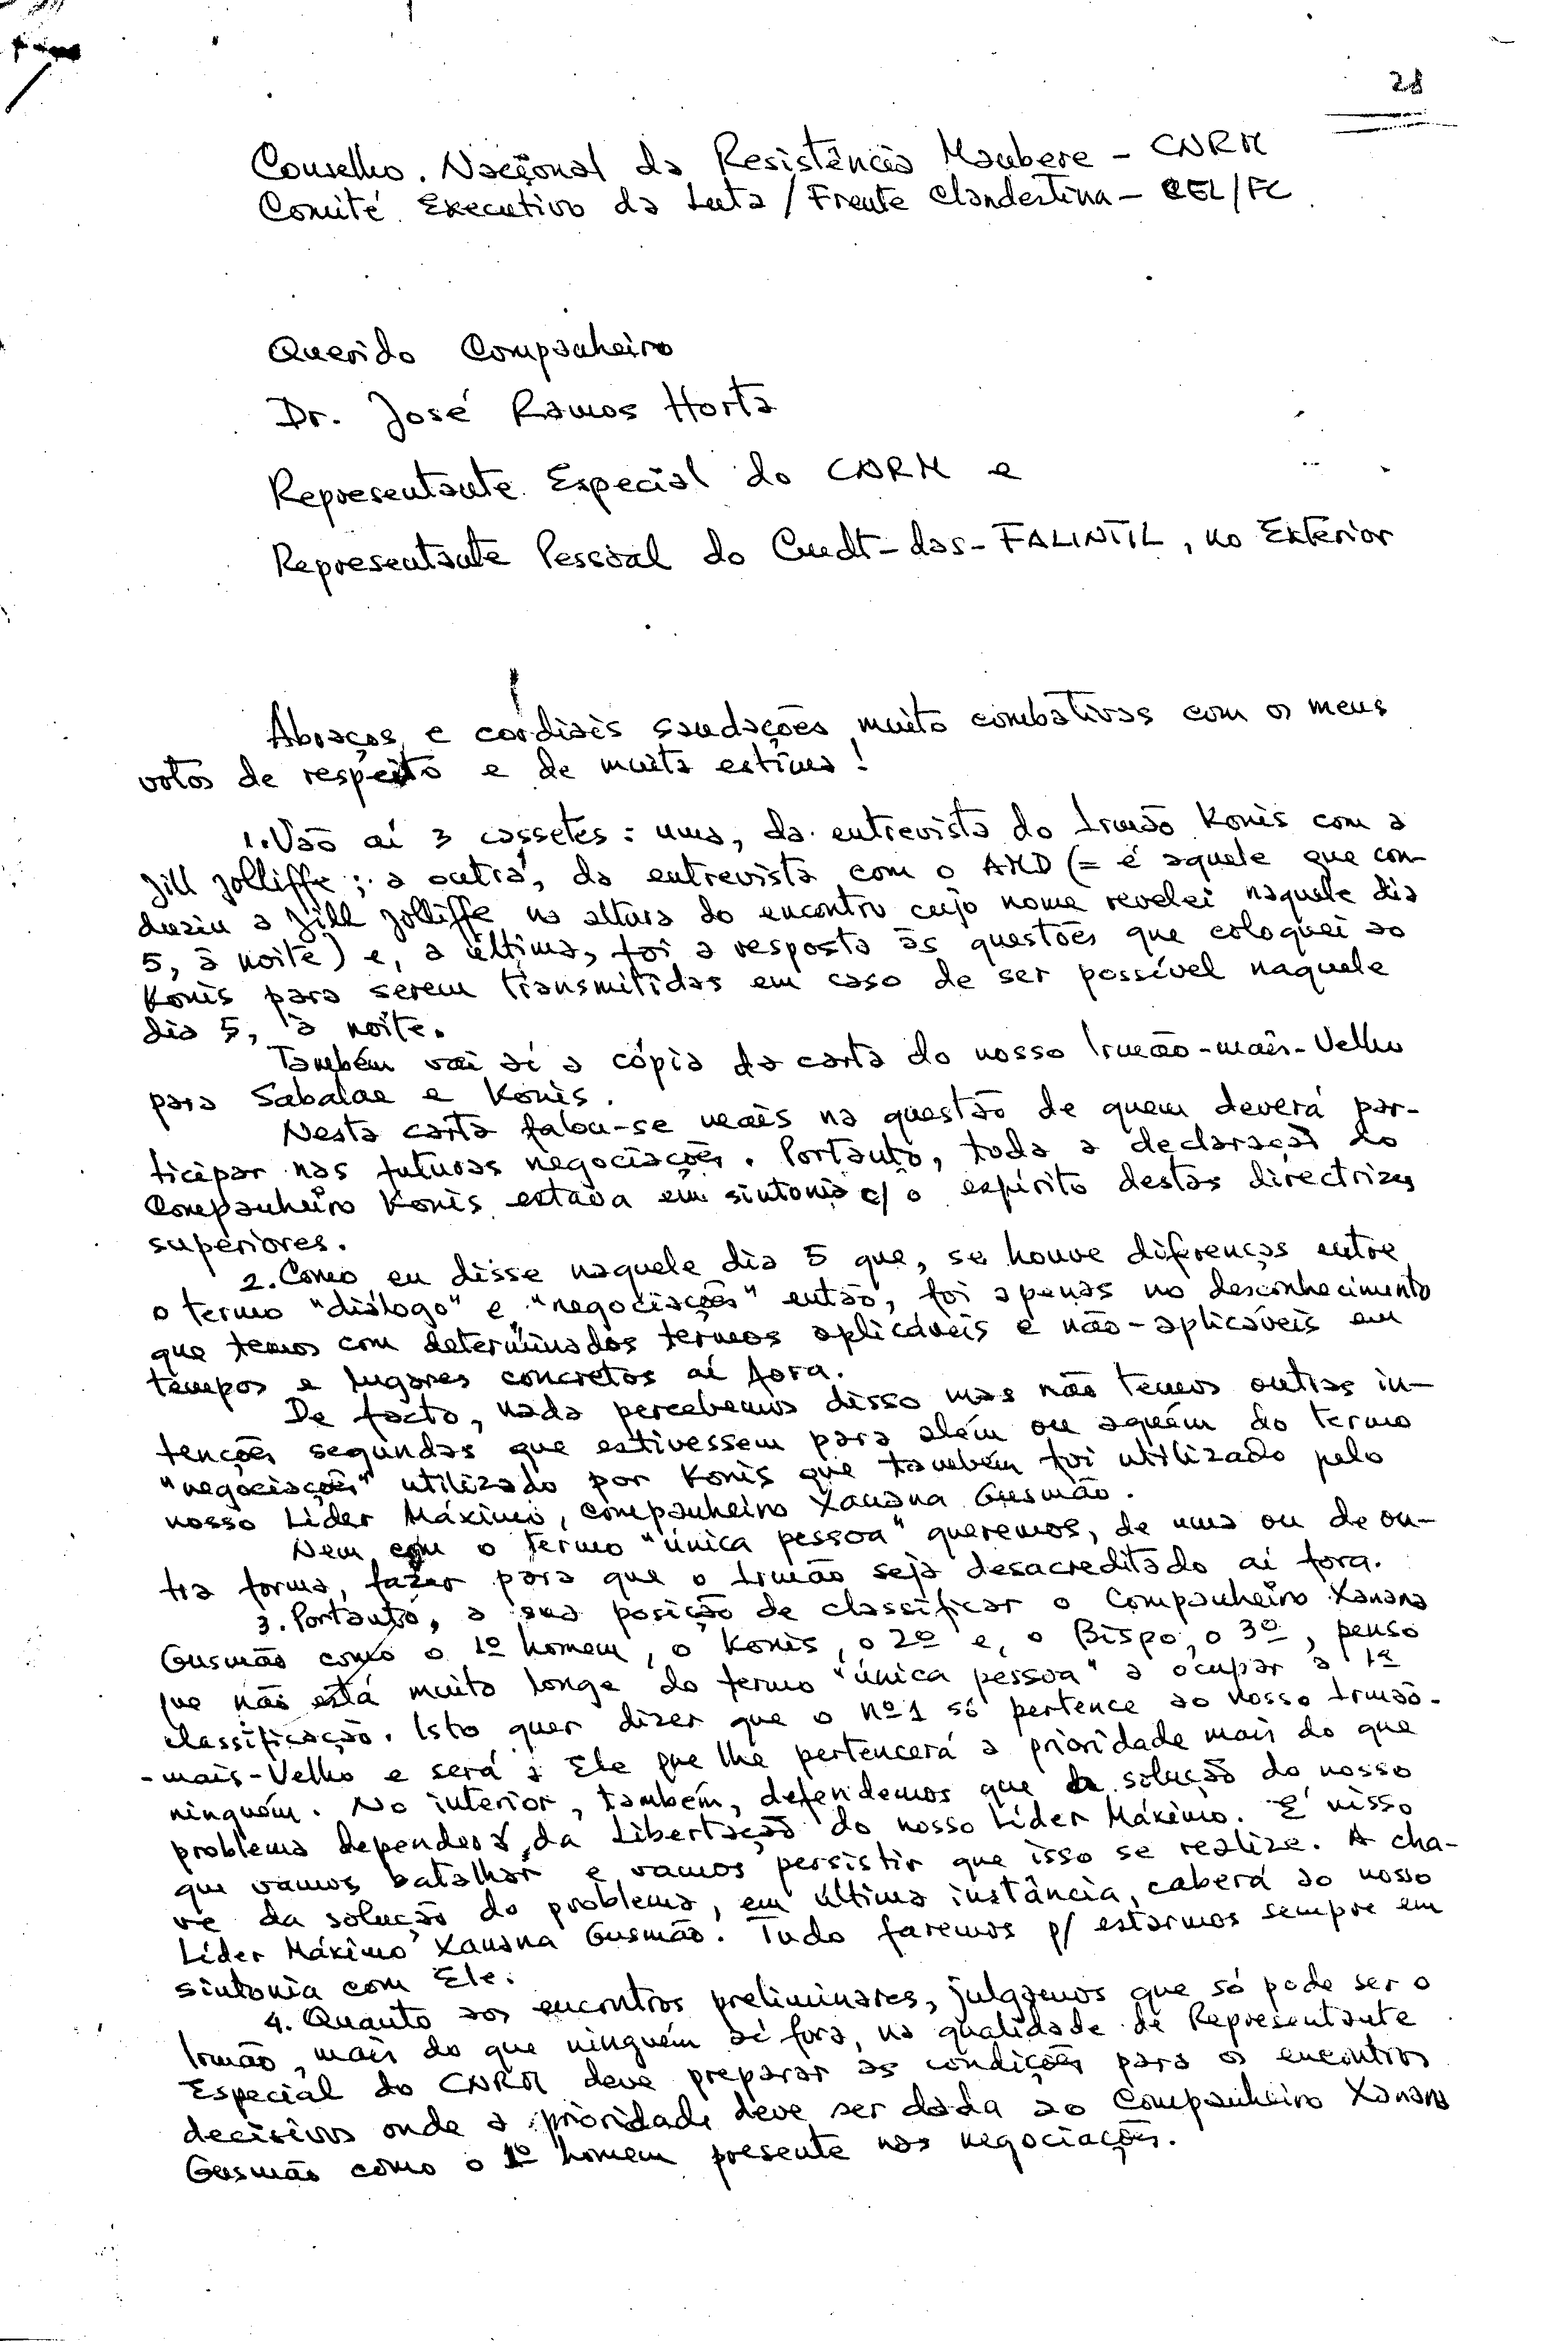 28
Conselho Nacional da Resistência Maubere - CNRM
Comité Executivo da Luta / Frente Clandestina - CEL/FC
Querido Companheiro
Dr. José Ramos Horta
Representante Especial do CNRM e
Representante Pessoal do Cmdt-das-FALINTIL, no Exterior
Abraços e cordiais saudações muito combativas com os meus
votos de respeito e de muita estima!
1. Vão aí 3 cassetes: uma, da entrevista do Irmão Konis com a
Jill Jolliffe; a outra, da entrevista com o AMD (= é aquele que con-
duziu a Jill Jolliffe na altura do encontro cujo nome revelei naquele dia
5, à noite) e, a última, foi a resposta às questões que coloquei ao
Konis para serem transmitidas em caso de ser possível naquele
dia 5, à noite.
Também vai aí a cópia da carta do nosso Irmão-mais-Velho
para Sabalae e Konis.
Nesta carta falou-se mais na questão de quem deverá par-
ticipar nas futuras negociações. Portanto, toda a declaração do
Companheiro Konis estava em sintonia c/ o espírito destas directrizes
superiores.
2. Como eu disse naquele dia 5 que, se houve diferenças entre
o termo "diálogo" e "negociações" então, foi apenas no desconhecimento
que temos com determinados termos aplicáveis e não-aplicáveis em
tempos e lugares concretos aí fora.
De facto, nada percebemos disso mas não temos outras in-
tenções segundas que estivessem para além ou aquém do termo
"negociações" utilizado por Konis que também foi utilizado pelo
nosso Líder Máximo, companheiro Xanana Gusmão.
Nem com o termo "única pessoa" queremos, de uma ou de ou-
tra forma, fazer para que o Irmão seja desacreditado aí fora.
3. Portanto, a sua posição de classificar o Companheiro Xanana
Gusmão como o 1º homem, o Konis, o 2º e, o Bispo, o 3º, penso
que não está muito longe do termo "única pessoa" a ocupar a 1ª
classificação. Isto quer dizer que o nº 1 só pertence ao nosso Irmão-
-mais-Velho e será a Ele que lhe pertencerá a prioridade mais do que
ninguém. No interior, também, defendemos que a solução do nosso
problema dependerá da Libertação do nosso Líder Máximo. É nisso
que vamos batalhar e vamos persistir que isso se realize. A cha-
ve da solução do problema, em última instância, caberá ao nosso
Líder Máximo Xanana Gusmão. Tudo faremos p/ estarmos sempre em
sintonia com Ele.
4. Quanto aos encontros preliminares, julgamos que só pode ser o
Irmão, mais do que ninguém aí fora, na qualidade de Representante
Especial do CNRM deve preparar as condições para os encontros
decisivos onde a prioridade deve ser dada ao Companheiro Xanana
Gusmão como o 1º homem presente nas negociações.